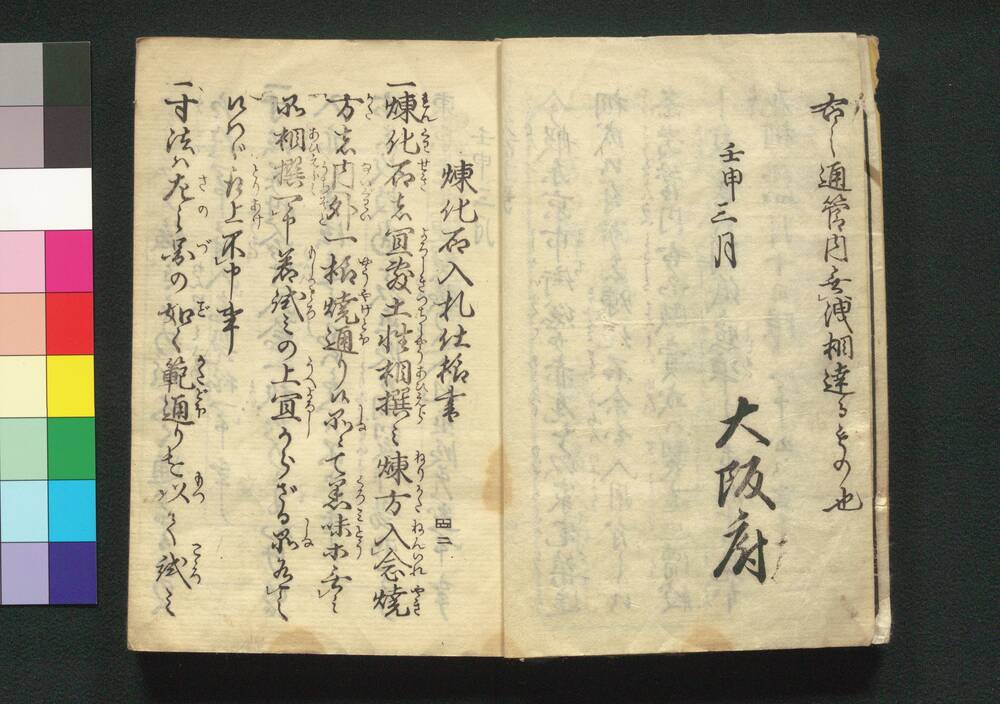 右之通管内無洩相達るもの也
壬申三月
大阪府
煉化石入札仕様書
四二
一煉化石之義土性相撰ミ煉方入念焼
方之内外一様焼通り候品ニて
品相撰可申若試ミの上宜からざる品有之
候ハゞ取上不申事
一寸法ハ左之図の如く範通りを以て試ミ